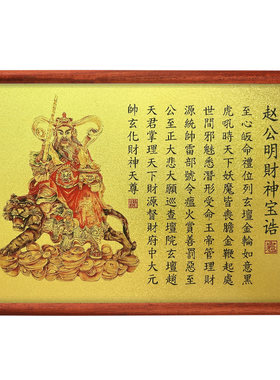 赵公明財神宝诰
至心皈命禮位列玄壇金輪如意黑
虎吼時天下妖魔皆喪膽金鞭起處
世間邪魅悉潛形受命玉帝管理財
源統帥雷部號令瘟火賞善罰惡至
公至正大悲大願巡查壇院玄壇趙
天君掌理天下財源督財府中大元
帥玄化財神天尊